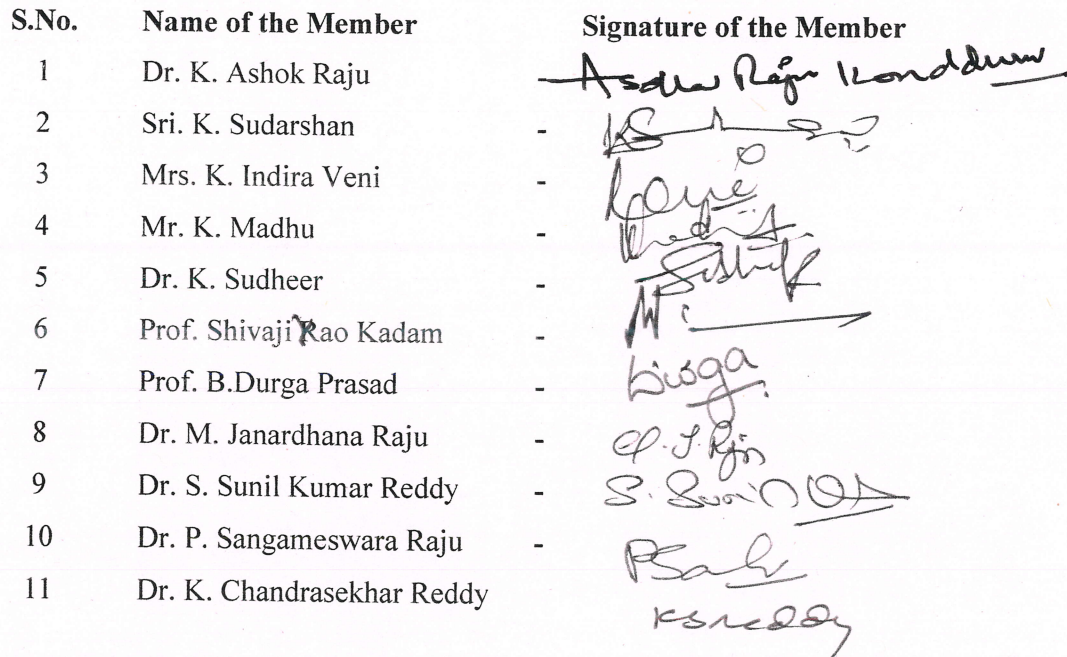 S.No. Name of the Member Signature of the Member
1 Dr. K. Ashok Raju - Raju
2 Sri. K. Sudarshan -
3 Mrs. K. Indira Veni -
4 Mr. K. Madhu -
5 Dr. K. Sudheer -
6 Prof. Shivaji Rao Kadam -
7 Prof. B.Durga Prasad - Durga
8 Dr. M. Janardhana Raju -
9 Dr. S. Sunil Kumar Reddy - S.
10 Dr. P. Sangameswara Raju -
11 Dr. K. Chandrasekhar Reddy
ksreddy